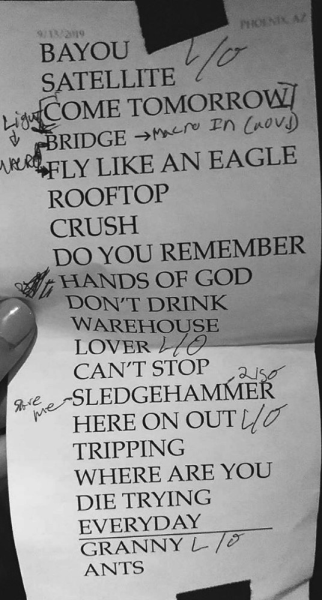 9/13/2019 PHOENIX, AZ
BAYOU L/O
SATELLITE
[COME TOMORROW]
BRIDGE → Macro In (
FLY LIKE AN EAGLE
ROOFTOP
CRUSH
DO YOU REMEMBER
HANDS OF GOD
DON'T DRINK
WAREHOUSE
LOVER L/O
CAN'T STOP
SLEDGEHAMMER
me
HERE ON OUT L/O
TRIPPING
WHERE ARE YOU
DIE TRYING
EVERYDAY
GRANNY L/O
ANTS